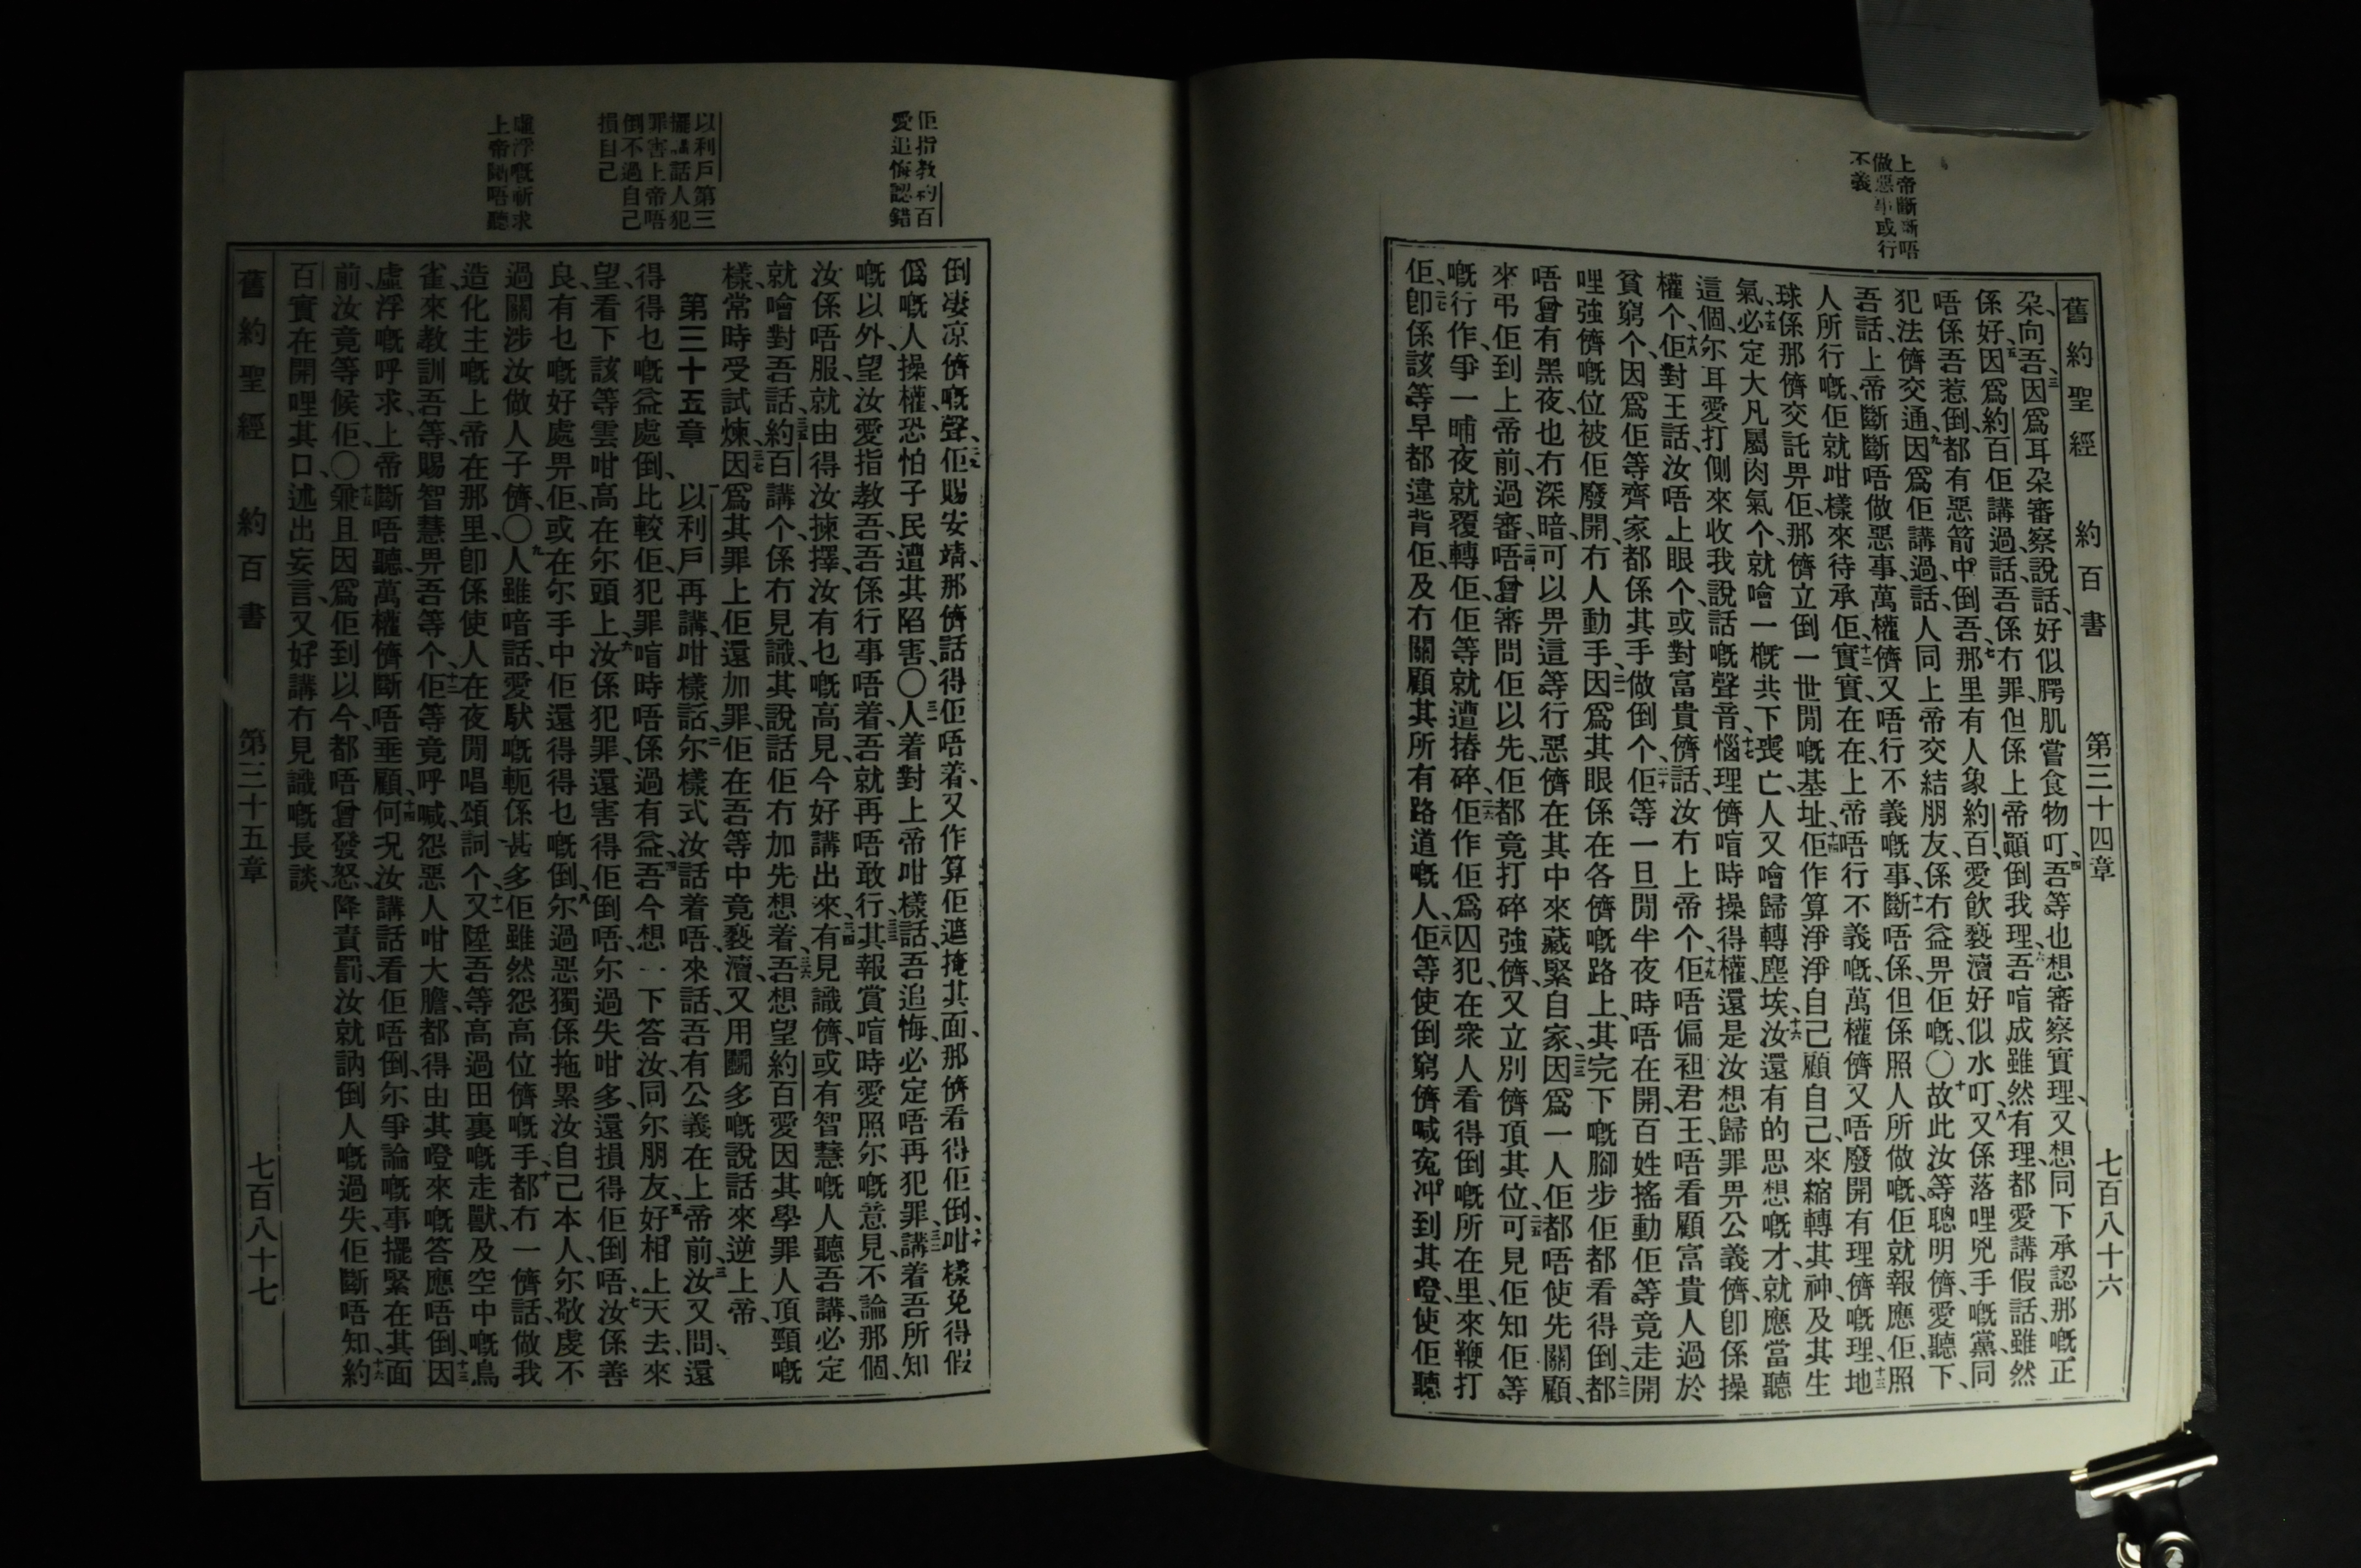 上帝斷斷唔
做惡事或行
不義
舊約聖經 約百書 第三十四章 七百八十六
朶、向吾、三因爲耳朶審察說話、好似腭肌嘗食物叮、四吾等也想審察實理、又想同下承認那嘅正
係好、五因爲約百佢講過話、吾係冇罪、但係上帝顚倒我理、六吾喧成雖然有理、都愛講假話、雖然
唔係吾惹倒、都有惡箭中倒吾、七那里有人象約百、愛飲褻瀆好似水叮、八又係落哩兇手嘅黨、同
犯法儕交通、九因爲佢講過話、人同上帝交結朋友、係冇益畀佢嘅、〇十故此汝等聰明儕愛聽下
吾話、上帝斷斷唔做惡事、萬權儕又唔行不義嘅事、十一斷唔係、但係照人所做嘅、佢就報應佢、照
人所行嘅、佢就咁樣來待承佢、十二實實在在、上帝唔行不義嘅、萬權儕又唔廢開有理儕嘅理、十三地
球係那儕交託畀佢、那儕立倒一世閒嘅基址、十四佢作算淨淨自己顧自己、來縮轉其神、及其生
氣、十五必定大凡屬肉氣个、就噲一概共下喪亡、人又噲歸轉塵埃、十六汝還有的思想嘅才、就應當聽
這個、尔耳愛打側來收我說話嘅聲音、十七惱理儕喧時操得權、還是汝想歸罪畀公義儕、卽係操
權个、十八佢對王話、汝唔上眼个、或對富貴儕話、汝冇上帝个、十九佢唔偏袒君王、唔看顧富貴人過於
貧窮个、因爲佢等齊家都係其手做倒个、二十佢等一旦閒半夜時唔在開、百姓搖動佢等竟走開
哩、強儕嘅位被佢廢開、冇人動手、二一因爲其眼係在各儕嘅路上、其完下嘅腳步佢都看得倒、二二都
唔曾有黑夜、也冇深暗、可以畀這等行惡儕在其中來藏緊自家、二三因爲一人佢都唔使先關顧、
來弔佢到上帝前、過審、二四唔曾審問佢以先、佢都竟打碎強儕、又立別儕頂其位、二五可見佢知佢等
嘅行作、爭一晡夜就覆轉佢、佢等就遭摏碎、二六佢作佢爲囚犯、在衆人看得倒嘅所在里、來鞭打
佢、二七卽係該等早都違背佢、及冇關顧其所有路道嘅人、二八佢等使倒窮儕喊寃沖到其𨅝、使佢聽
佢指教約百
愛追悔認錯
以利戶第三
擺講話人犯
罪害上帝唔
倒不過自己
損自己
虛浮嘅祈求
上帝斷唔聽
倒凄凉儕嘅聲、二九佢賜安靖、那儕話得佢唔着、又作算佢遮掩其面、那儕看得佢倒、三十咁樣免得假
僞嘅人操權、恐怕子民遭其陷害、〇三一人着對上帝咁樣話、吾追悔、必定唔再犯罪、三二講着吾所知
嘅以外、望汝愛指教吾、吾係行事唔着、吾就再唔敢行、三三其報賞喧時愛照尔嘅意見、不論那個、
汝係唔服、就由得汝揀擇、汝有乜嘅高見、今好講出來、三四有見識儕、或有智慧嘅人聽吾講、必定
就噲對吾話、三五約百講个、係冇見識、其說話佢冇加先想着、三六吾想望約百愛因其學罪人頂頸嘅
樣、常時受試煉、三七因爲其罪上佢還加罪、佢在吾等中竟褻瀆、又用關多嘅說話來逆上帝、
第三十五章 一以利戶再講、咁樣話、二尔樣式、汝話着唔、來話、吾有公義在上帝前、三汝又問、還
得得乜嘅益處倒、比較佢犯罪喧時唔係過有益、四吾今想一下答汝、同尔朋友、五好相上天去來
望、看下該等雲咁高、在尔頭上、六汝係犯罪、還害得佢倒唔、尔過失咁多、還損得佢倒唔、七汝係善
良、有乜嘅好處畀佢、或在尔手中佢還得得乜嘅倒、八尔過惡獨係拖累汝自己本人、尔敬虔不
過關涉汝做人子儕、〇九人雖喑話、愛馱嘅軛係甚多、佢雖然怨高位儕嘅手、十都冇一儕話、做我
造化主嘅上帝在那里、卽係使人在夜閒唱頌詞个、十一又陞吾等高過田裏嘅走獸、及空中嘅鳥
雀、來教訓吾等、賜智慧畀吾等个、十二佢等竟呼喊、怨惡人咁大膽、都得由其𨅝來嘅答應唔倒、十三因
虛浮嘅呼求、上帝斷唔聽、萬權儕斷唔垂顧、十四何况汝講話看佢唔倒、尔爭論嘅事擺緊在其面
前、汝竟等候佢、〇十五兼且因爲佢到以今、都唔曾發怒、降責罰、汝就訥倒人嘅過失、佢斷唔知、十六約
百實在開哩其口、述出妄言、又好講冇見識嘅長談、
舊約聖經 約百書 第三十五章 七百八十七